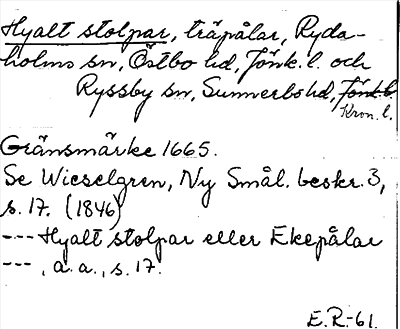 Hyalt stolpar, träpålar, Ryda-
holms sn, Östbo hd, Jönk. l. och
Ryssby sn, Sunnerbo hd, Jönk. l.
Kron. l.
Gränsmärke 1665.
Se Wieselgren, Ny Smål. beskr. 3,
s. 17. (1846)
--- Hyalt stolpar eller Ekepålar
---, a. a., s. 17.
E. R.-61.